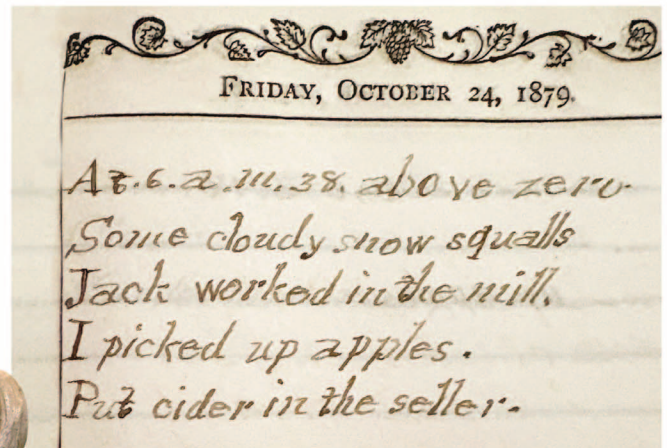 FRIDAY, OCTOBER 24, 1879.
At. 6. a. m. 38. above zero.
Some cloudy snow squalls
Jack worked in the mill.
I picked up apples.
Put cider in the seller.